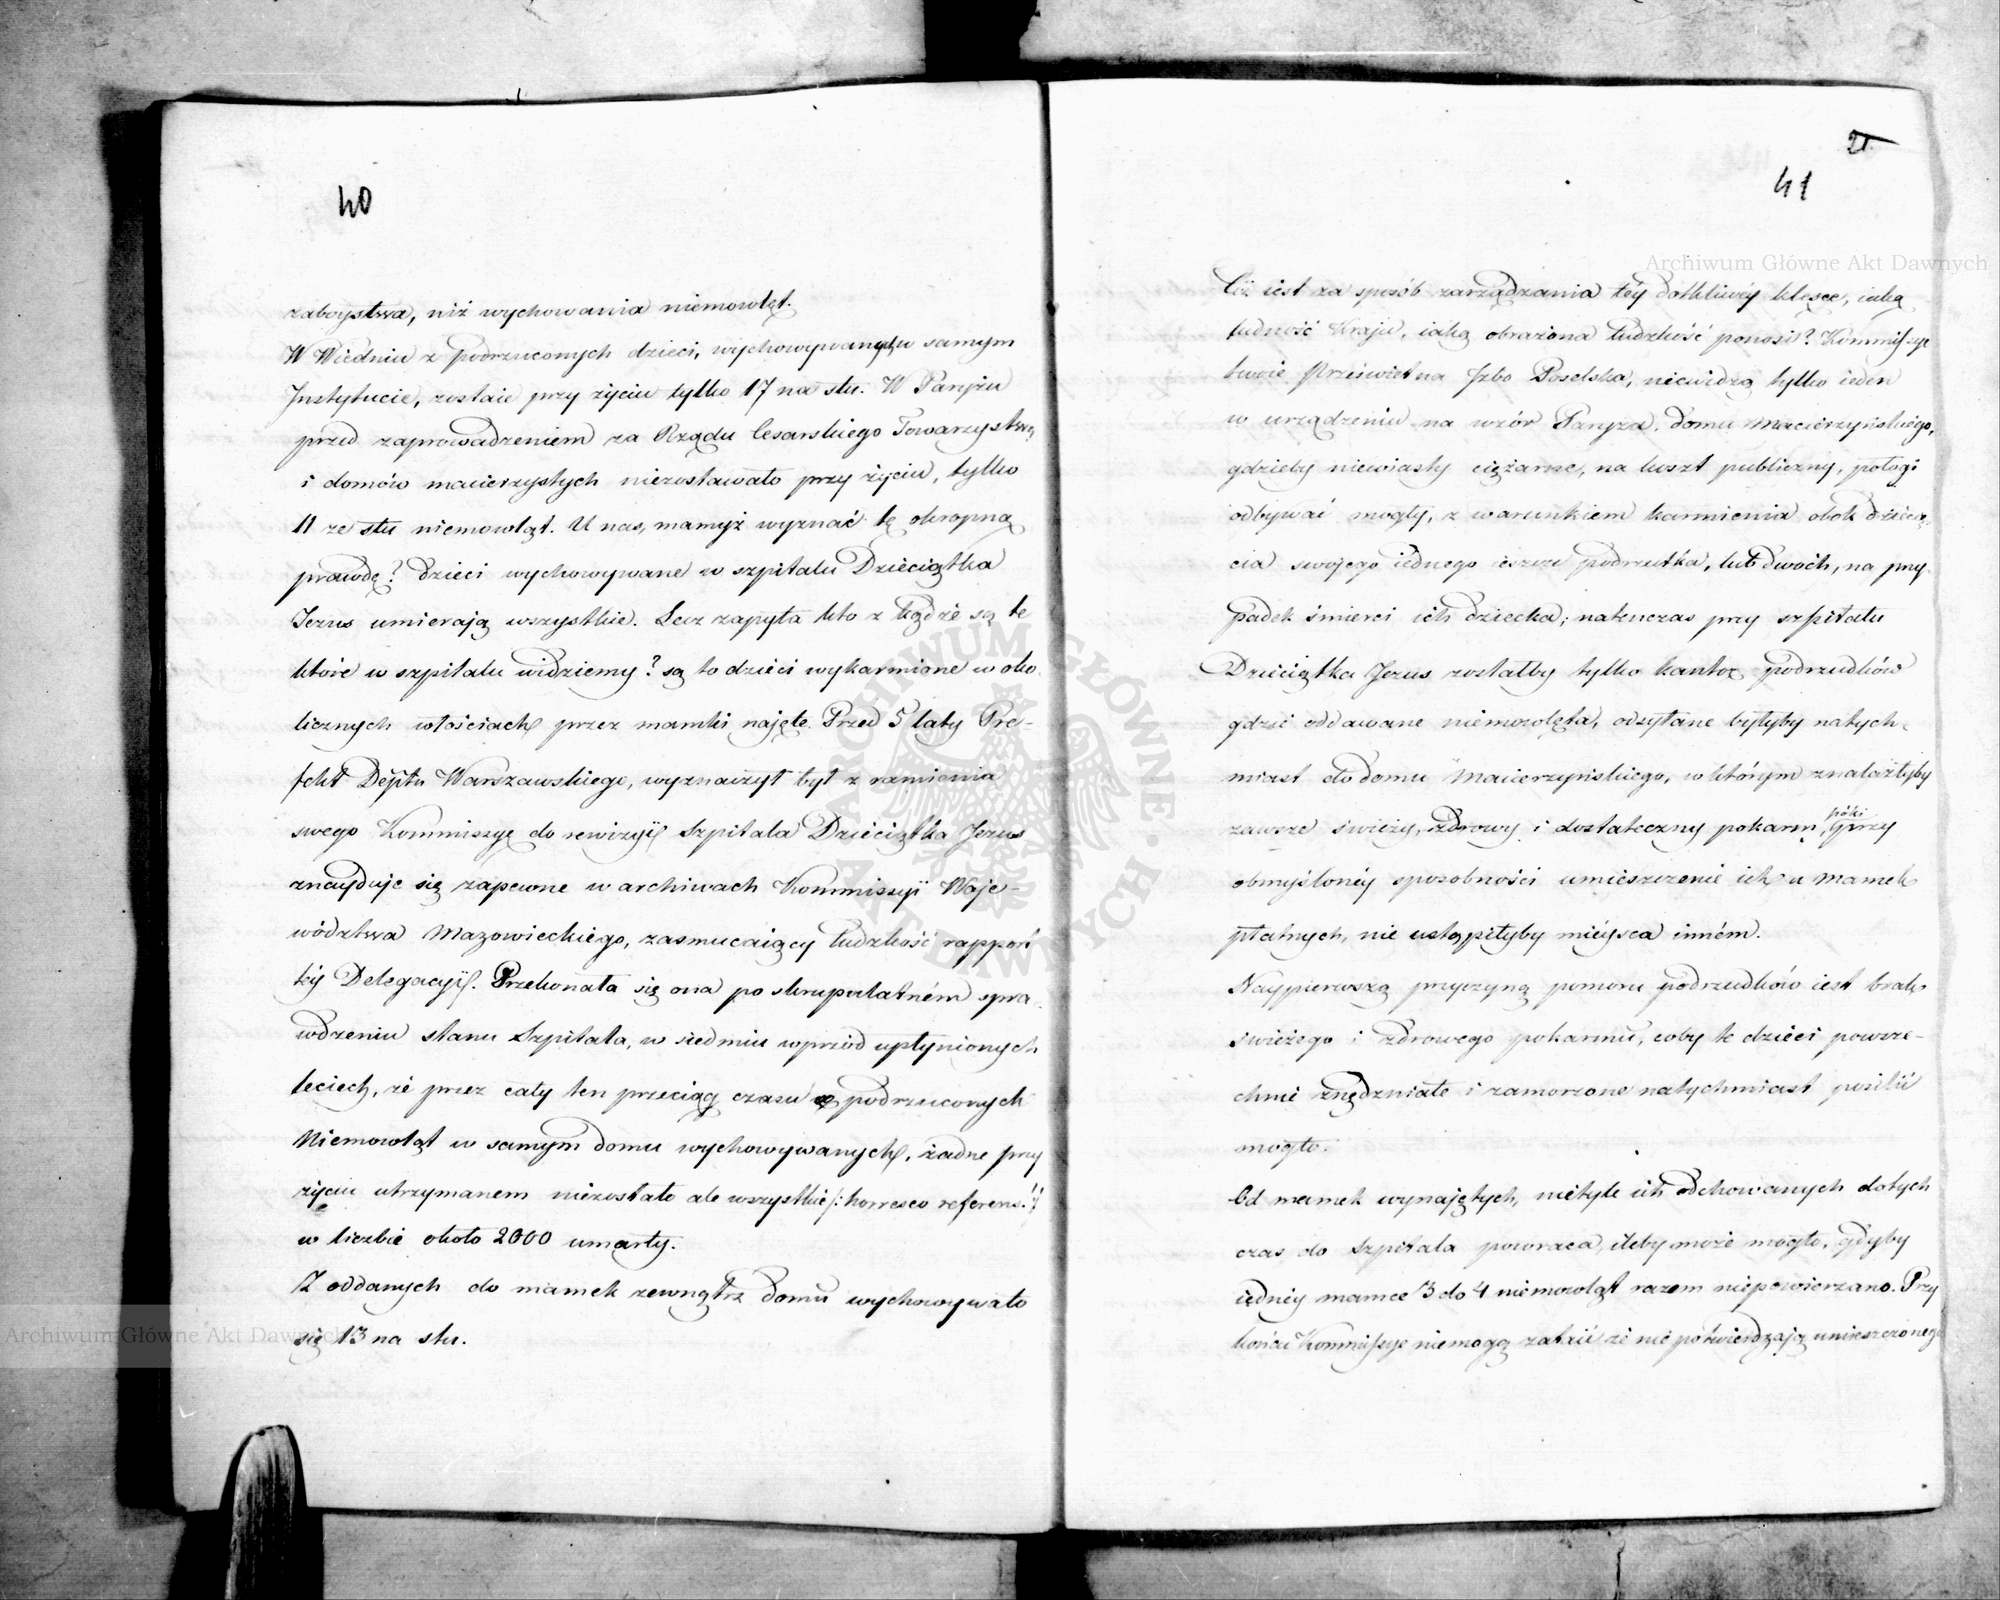 40
zaboystwa, niż wychowania niemowląt.
W Wiedniu z podrzuconych dzieci, wychowywanych w samym
Instytucie, zostaie przy życiu tylko 17 na stu. W Paryżu
przed zaprowadzeniem za Rządu Cesarskiego Towarzystwa
i domów macierzystych niezostawało przy życiu, tylko
11 ze stu niemowląt. U nas, mamyż wyznać tę okropną
prawdę? dzieci wychowywane w szpitalu Dzieciątka
Jezus umierają wszystkie. Lecz zapyta kto z kądże są te
które w szpitalu widziemy? są to dzieci wykarmione w oko
licznych włościach przez mamki najęte. Przed 5 laty Pre-
fekt Deptu Warszawskiego, wyznaczył był z ramienia
swego Kommissyę do rewizyi Szpitala Dzieciątka Jezus
znayduje się zapewne w archiwach Kommissyi Woje-
wództwa Mazowieckiego, zasmucaiący ludzkość rapport
téy Delegacyi. Przekonała się ona po skrupulatném spra-
wdzeniu stanu Szpitala, w siedmiu wprzód upłynionych
leciech, że przez cały ten przeciąg czasu z podrzuconych
Niemowląt w samym domu wychowywanych, żadne przy
życiu utrzymanem niezostało ale wszystkie /: horresco referens! :/
w liczbie około 2000 umarły.
Z oddanych do mamek zewnątrz domu wychowywało
się 13 na stu.
21
41
Cóż iest za sposób zarządzania téy dotkliwéy klęsce, iaką
ludność Kraju, iaką obrażona ludzkość ponosi? Kommissye
twoie Prześwietna Izbo Poselska, niewidzą tylko ieden
w urządzeniu na wzór Paryża, domu Macierzyńskiego,
gdzieby niewiasty ciężarne, na koszt publiczny, połogi
odbywać mogły, z warunkiem karmienia obok dziecię-
cia swojego iednego ieszcze podrzutka, lub dwóch, na przy-
padek śmierci ich dziecka; natenczas przy szpitalu
Dzieciątka Jezus zostałby tylko kantor podrzudków
gdzie oddawane niemowlęta, odsyłane byłyby natych-
miast do domu Macierzyńskiego, w którym znalazłyby
zawsze świeży, zdrowy i dostateczny pokarm, póki przy
obmyślonéy sposobności umieszczenie ich u mamek
płatnych, nie ustąpiłyby mieysca inném.
Naypierwszą przyczyną pomoru podrzudków iest brak
świeżego i zdrowego pokarmu, coby te dzieci powsze-
chnie znędzniałe i zamorzone natychmiast posilić
mogło.
Od mamek wynajętych, nietyle ich odchowanych dotych
czas do Szpitala powraca, ileby może mogło, gdyby
iednéy mamce 3 do 4 niemowląt razem niepowierzano. Przy
końcu Kommissye niemogą zataić że nie potwierdzają umieszczonego